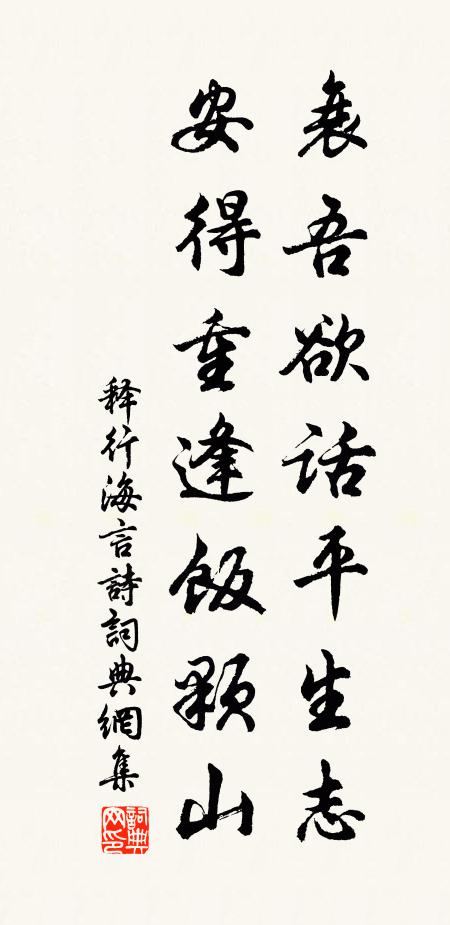 衰吾欲話平生志
安得重逢飯顆山
释行海言詩詞典網集
詞典
网印